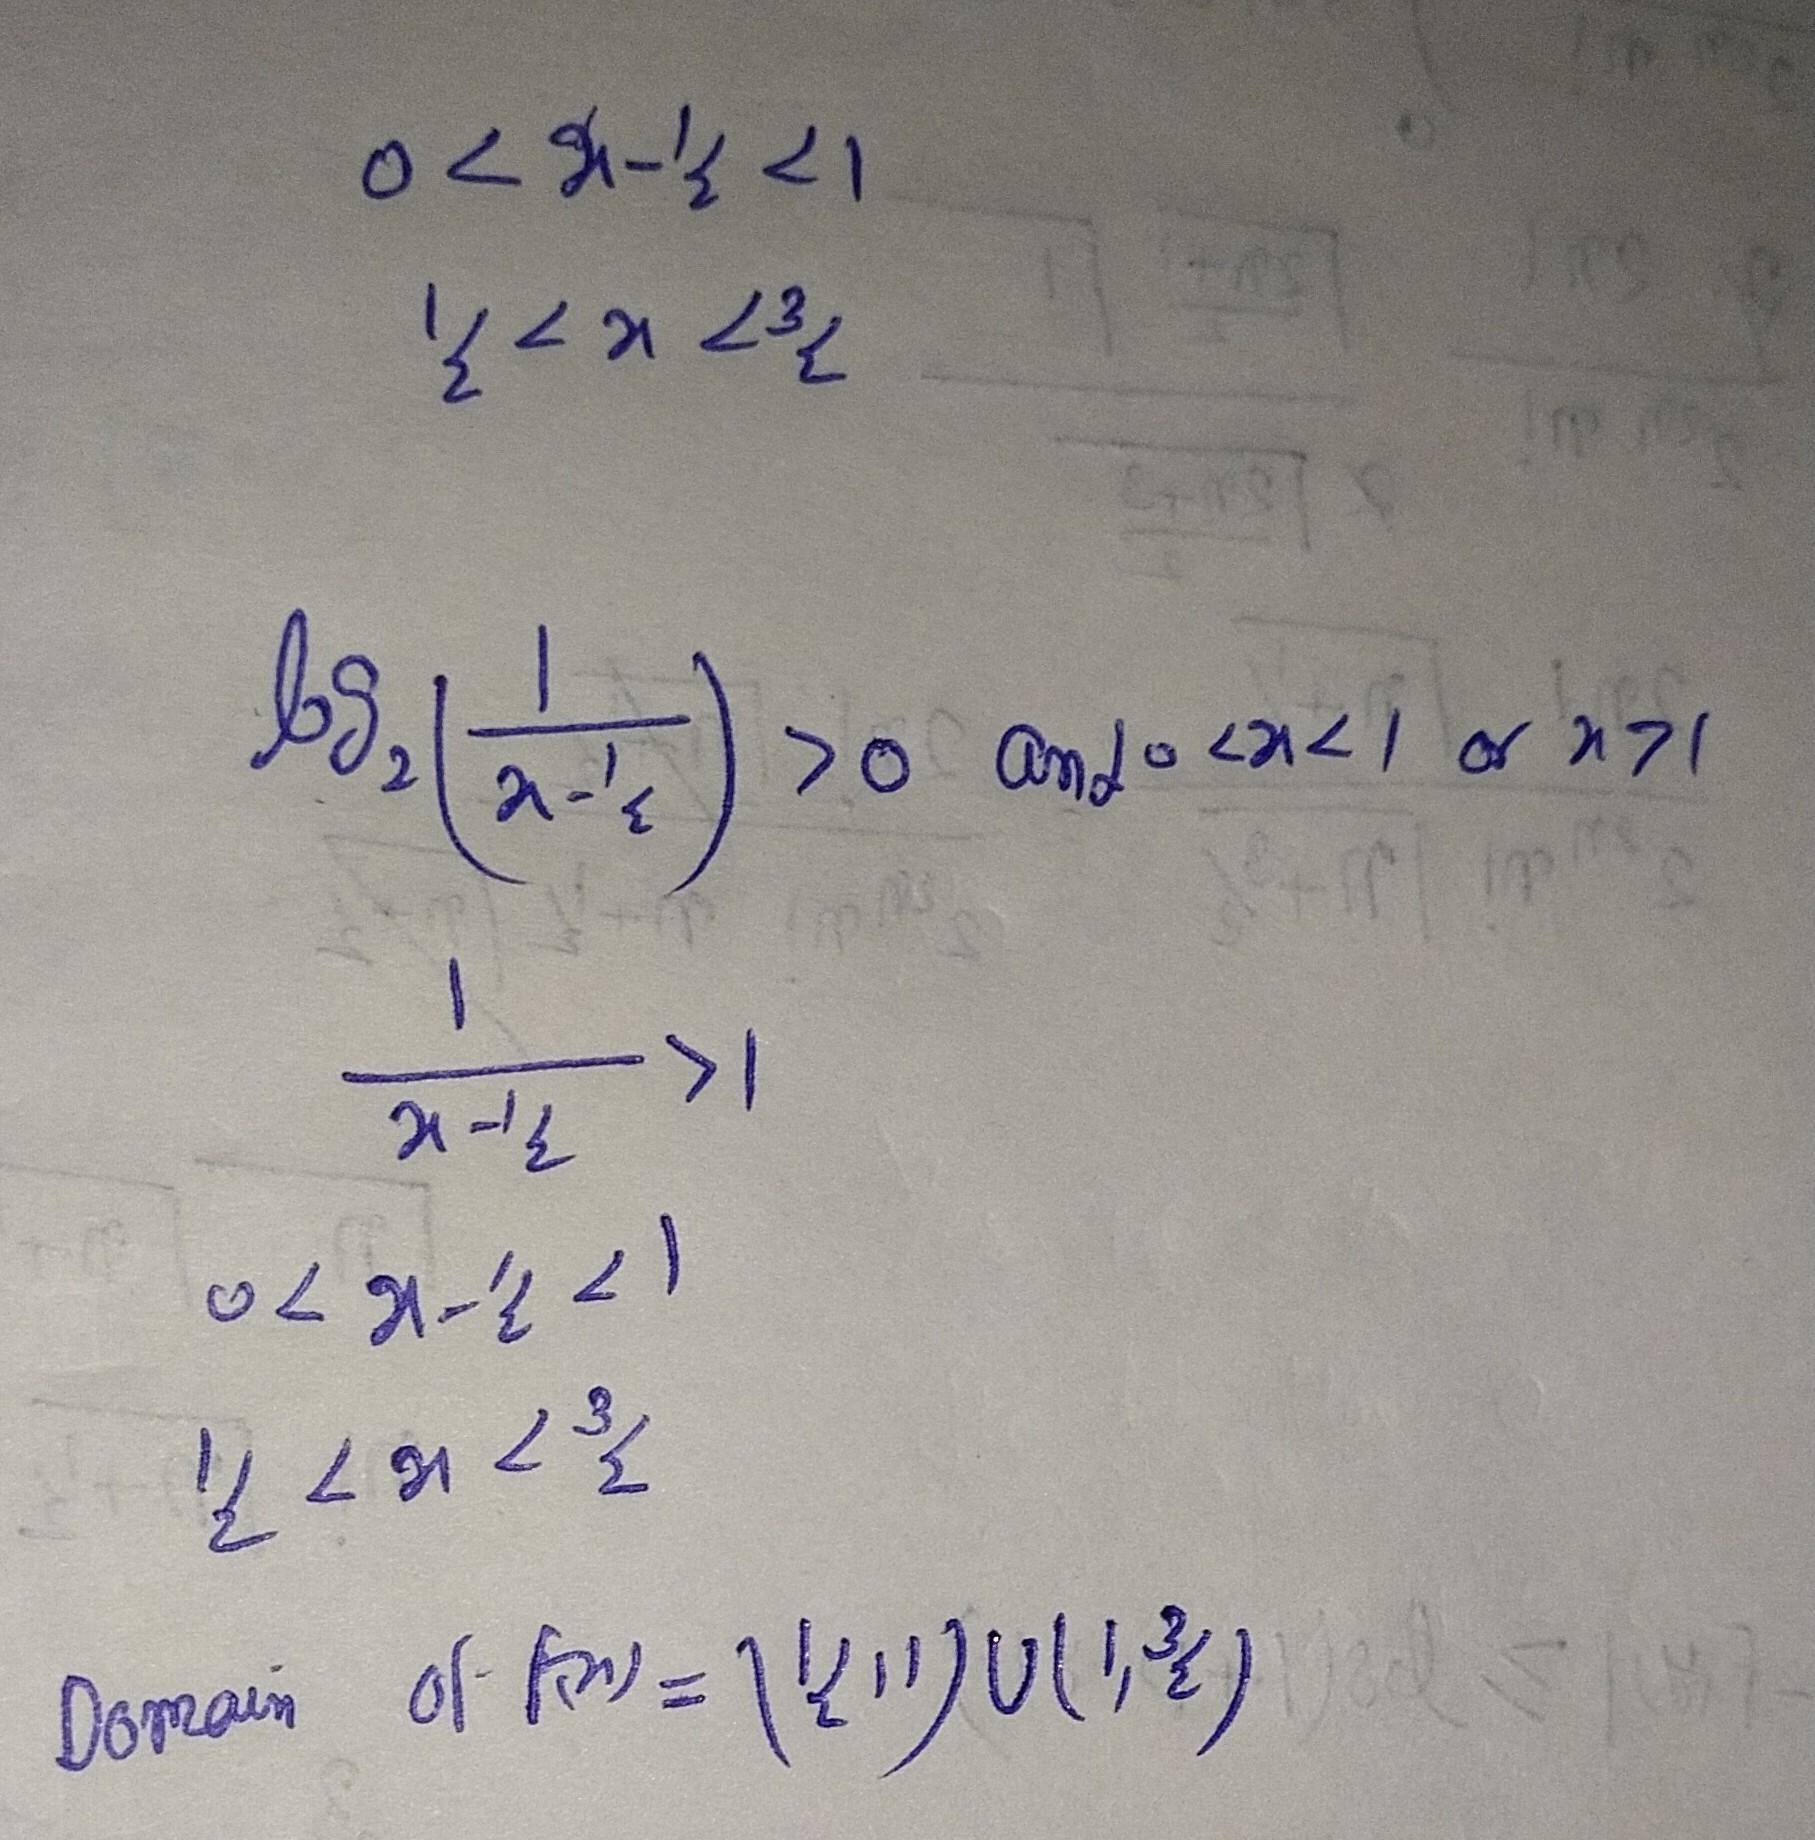 0 < x - 1/2 < 1
1/2 < x < 3/2
log₂(1/(x - 1/2)) > 0 and 0 < x < 1 or x > 1
1/(x - 1/2) > 1
0 < x - 1/2 < 1
1/2 < x < 3/2
Domain of f(x) = (1/2, 1) ∪ (1, 3/2)